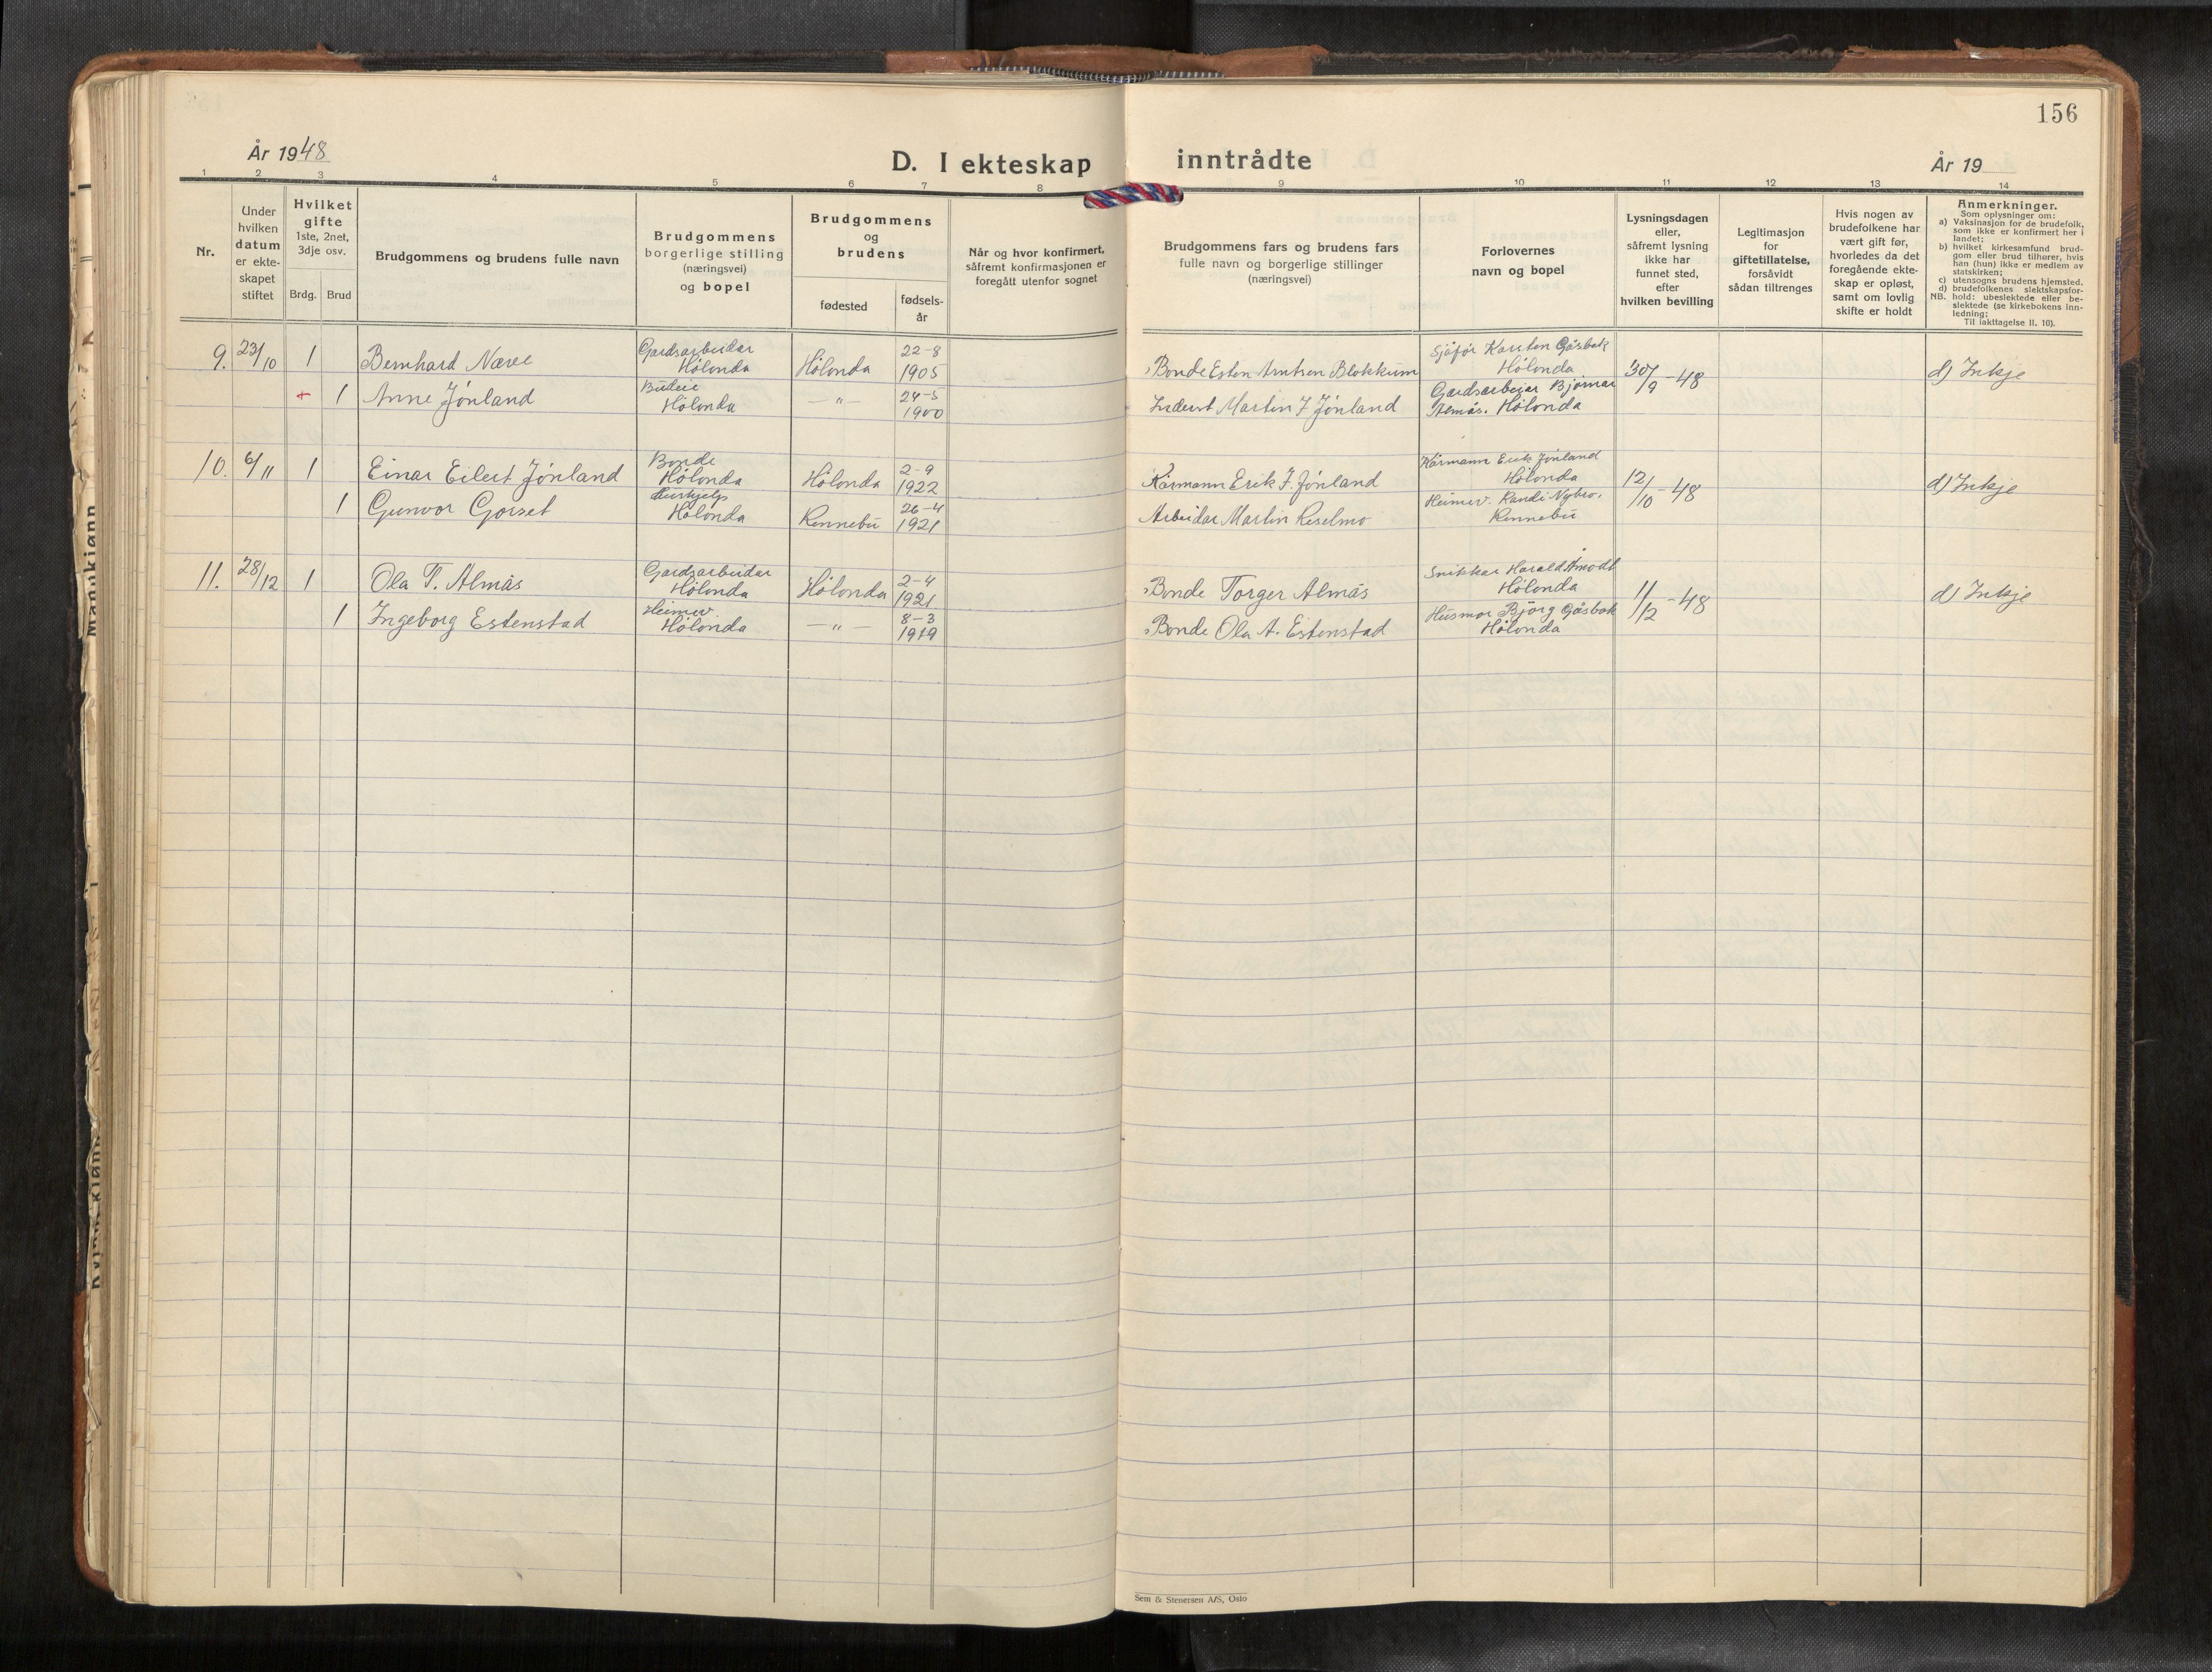 156
År 1948
D. I ekteskap inntrådte
År 19
1 2 3 4 5 6 7 8 9 10 11 12 13 14
Nr.
Under
hvilken
datum
er ekte-
skapet
stiftet
Hvilket
gifte
1ste, 2net,
3dje osv.
Brdg. Brud
Brudgommens og brudens fulle navn
Brudgommens
borgerlige stilling
(næringsvei)
og bopel
Brudgommens
og
brudens
fødested
fødsels-
år
Når og hvor konfirmert,
såfremt konfirmasjonen er
foregått utenfor sognet
Brudgommens fars og brudens fars
fulle navn og borgerlige stillinger
(næringsvei)
Forlovernes
navn og bopel
Lysningsdagen
eller,
såfremt lysning
ikke har
funnet sted,
efter
hvilken bevilling
Legitimasjon
for
giftetillatelse,
forsåvidt
sådan tiltrenges
Hvis nogen av
brudefolkene har
vært gift før,
hvorledes da det
foregående ekte-
skap er opløst,
samt om lovlig
skifte er holdt
Anmerkninger.
Som oplysninger om:
a) Vaksinasjon for de brudefolk,
som ikke er konfirmert her i
landet;
b) hvilket kirkesamfund brud-
gom eller brud tilhører, hvis
han (hun) ikke er medlem av
statskirken;
c) utensogns brudens hjemsted.
d) brudefolkenes slektskapsfor-
NB. hold: ubeslektede eller be-
slektede (se kirkebokens inn-
ledning;
Til iakttagelse II. 10).
9. 23/10 1 Bernhard Næve
Gardsarbeidar
Hølonda
Hølonda
22-8
1905
Bonde Esten Arntsen Blokkum
Sjåfør Karsten Gåsbak
Hølonda
30/9-48
d) Inkje
+ 1 Anne Jønland
Budeie
Hølonda
— " —
24-5
1900
Inderst Martin J Jønland
Gardsarbeiar Bjørnar
Almås. Hølonda
10. 6/11 1 Einar Eilert Jønland
Bonde
Hølonda
Hølonda
2-9
1922
Kårmann Erik J. Jønland
Kårmann Erik Jønland
Hølonda
12/10-48
d) Inkje
1 Gunvor Gorset
Hushjelp
Hølonda
Rennebu
26-4
1921
Arbeidar Martin Reselmo
Heimev. Randi Nybro.
Rennebu
11. 28/12 1 Ola T. Almås
Gardsarbeidar
Hølonda
Hølonda
2-4
1921
Bonde Torger Almås
Snikkar Harald Åmodt
Hølonda
11/12-48
d) Inkje
1 Ingeborg Estenstad
Heimev.
Hølonda
— " —
8-3
1919
Bonde Ola A. Estenstad
Husmor Bjørg Gåsbak
Hølonda
Sem & Stenersen A/S, Oslo
Mannkjønn
Kvinnekjønn